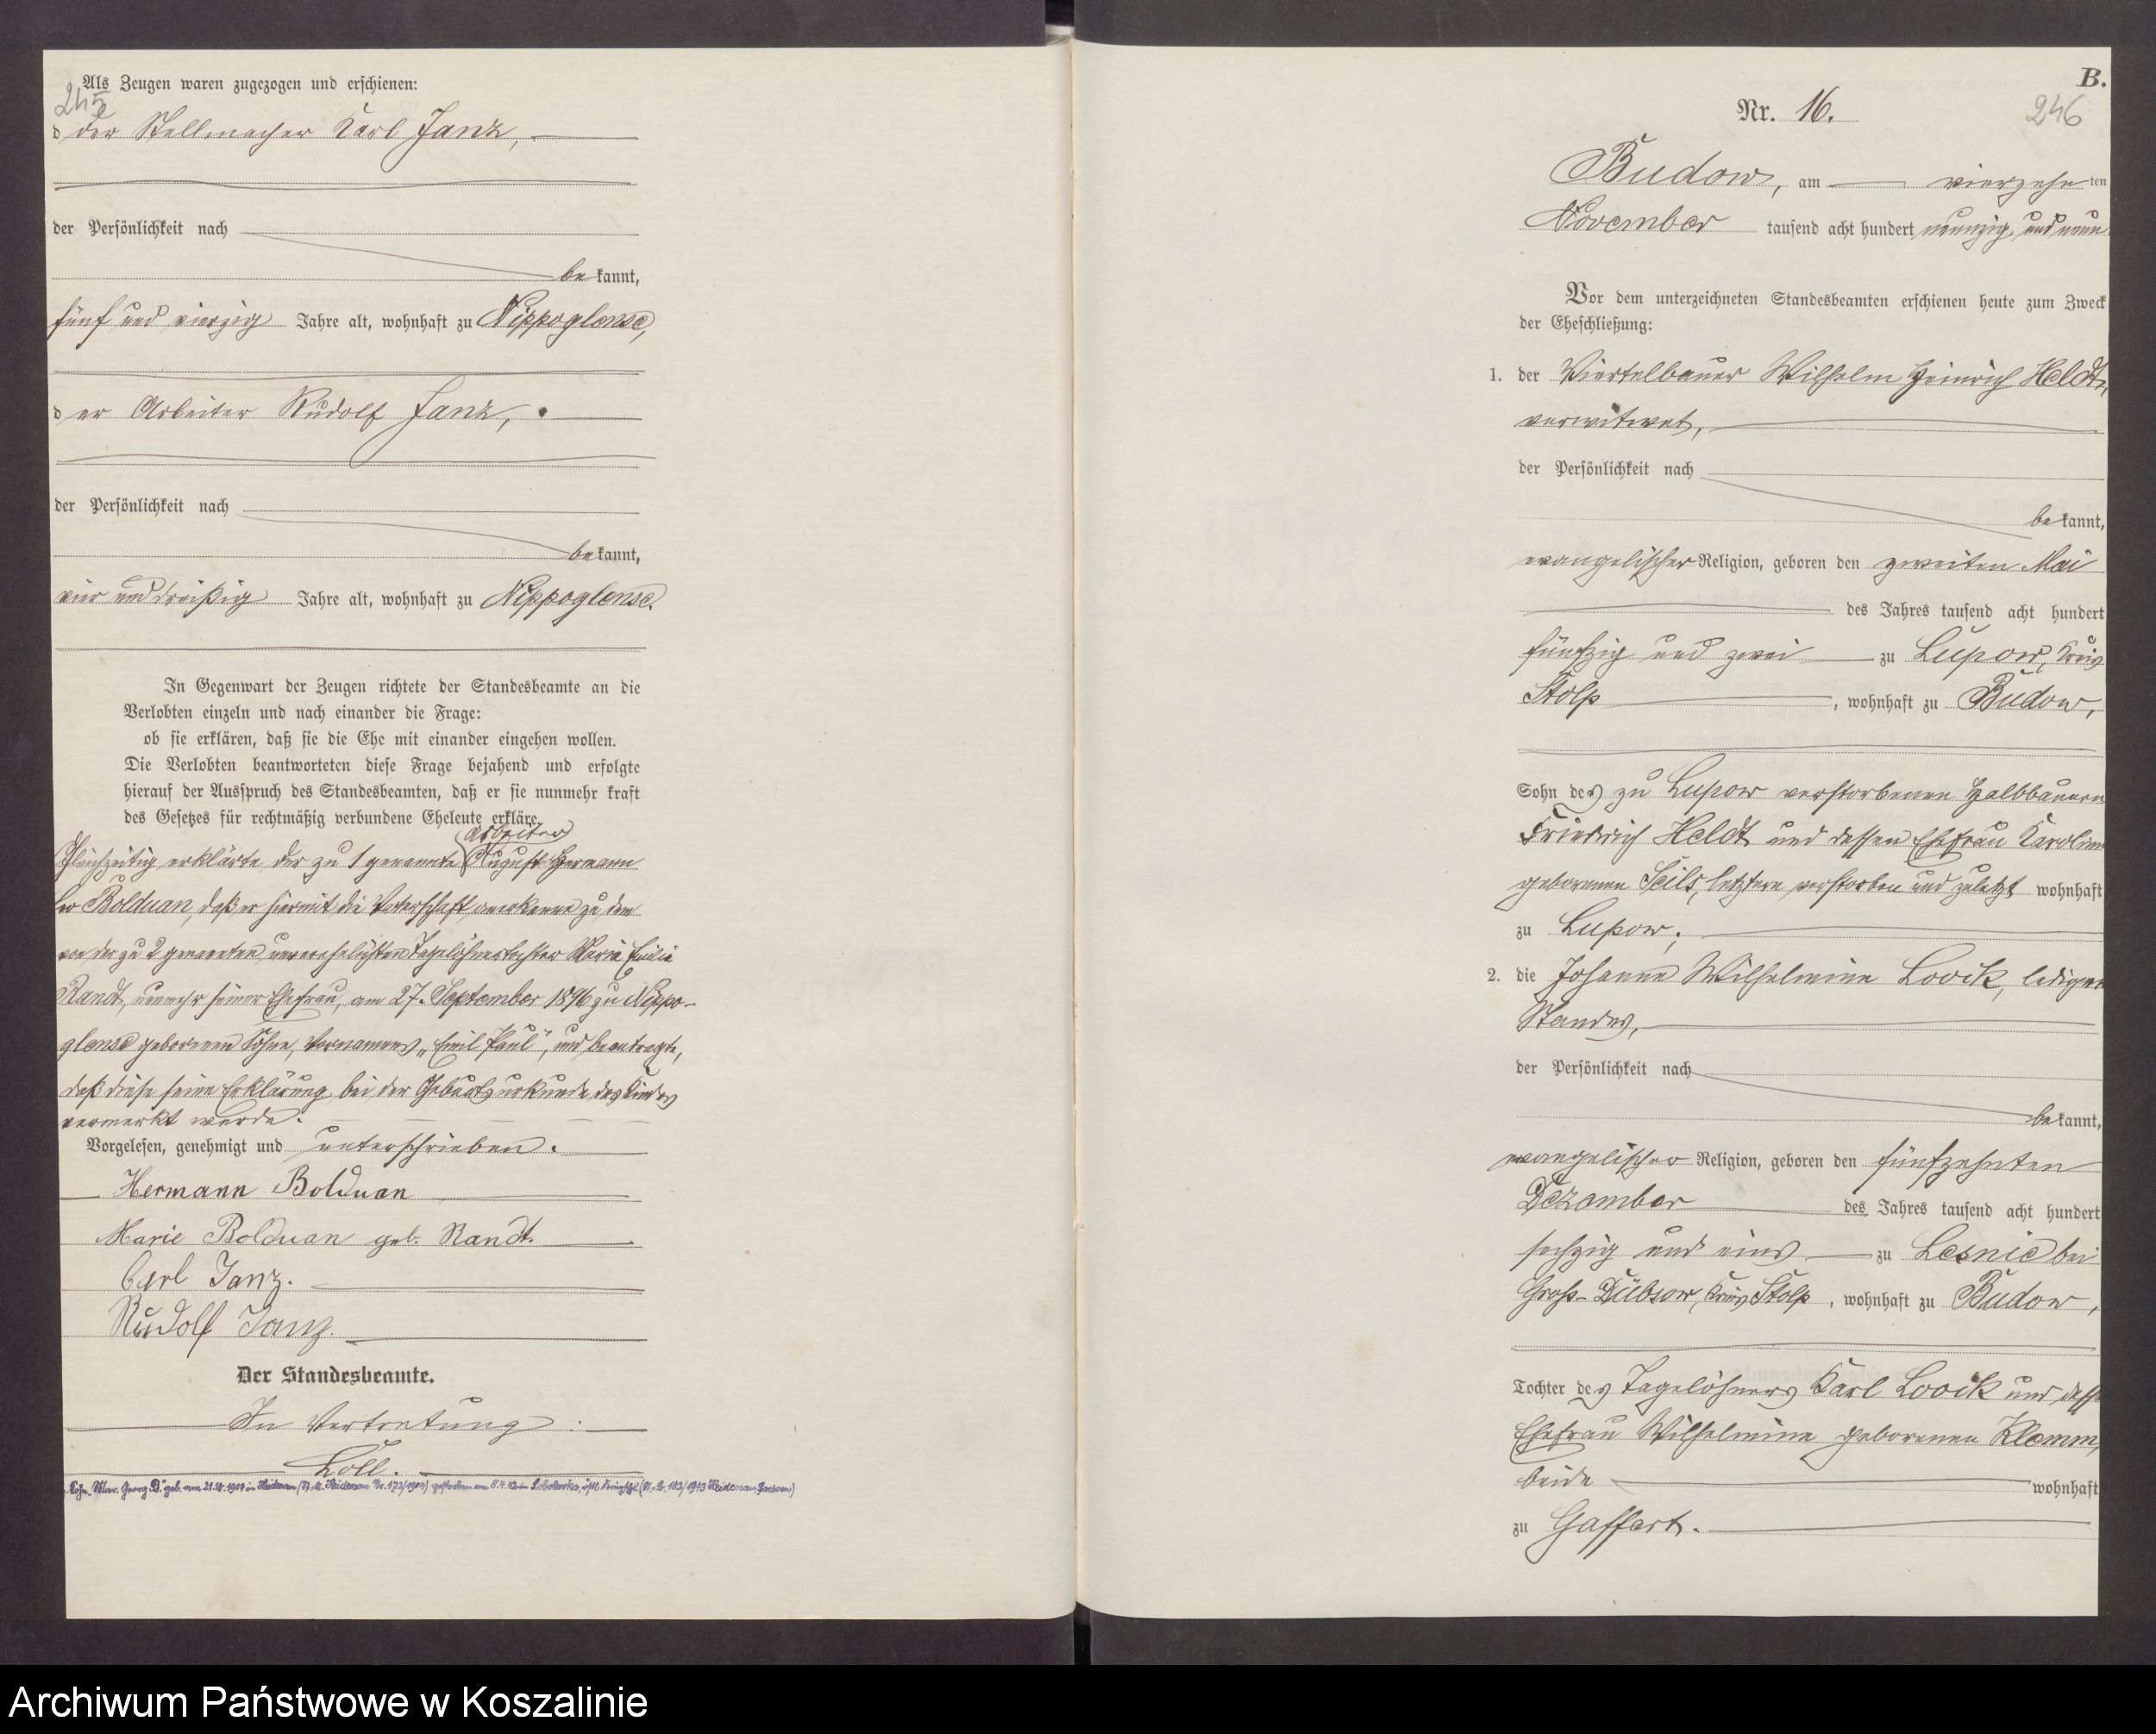 Als Zeugen waren zugezogen und erschienen:
245
d der Stellmacher Karl Janz,
der Persönlichkeit nach
be kannt,
fünf und vierzig Jahre alt, wohnhaft zu Nippoglense,
d er Arbeiter Rudolf Janz,
der Persönlichkeit nach
be kannt,
vier und dreißig Jahre alt, wohnhaft zu Nippoglense.
In Gegenwart der Zeugen richtete der Standesbeamte an die
Verlobten einzeln und nach einander die Frage:
ob sie erklären, daß sie die Ehe mit einander eingehen wollen.
Die Verlobten beantworteten diese Frage bejahend und erfolgte
hierauf der Ausspruch des Standesbeamten, daß er sie nunmehr kraft
des Gesetzes für rechtmäßig verbundene Eheleute erkläre.
Arbeiter
Gleichzeitig erklärte der zu 1 genannte August Hermann
Bolduan, daß er hiermit die Vaterschaft anerkenne zu dem
von der zu 2 genannten unverehelichten Tagelöhnertochter Marie Emilie
Randt, nunmehr seiner Ehefrau, am 27. September 1896 zu Nippo-
glense geborenen Sohne, Vornamens „Emil Paul", und beantragte,
daß diese seine Erklärung bei der Geburtsurkunde des Kindes
vermerkt werde.
Vorgelesen, genehmigt und unterschrieben.
Hermann Bolduan
Marie Bolduan geb. Randt.
Carl Janz.
Rudolf Janz.
Der Standesbeamte.
In Vertretung:
Löll.
Sohn Max Georg B. geb. am 1901 in Heidenau (St. A. Heidenau Nr. 172/1901) gestorben am (St. A. 182/1943 Heidenau, Sachsen)
B.
Nr. 16.
246
Budow, am vierzehn ten
November tausend acht hundert neunzig und neun
Vor dem unterzeichneten Standesbeamten erschienen heute zum Zweck
der Eheschließung:
1. der Viertelbauer Wilhelm Heinrich Heldt,
verwitwet,
der Persönlichkeit nach
be kannt,
evangelischer Religion, geboren den zweiten Mai
des Jahres tausend acht hundert
fünfzig und zwei zu Lupow, Kreis
Stolp, wohnhaft zu Budow,
Sohn des zu Lupow verstorbenen Halbbauern
Friedrich Heldt und dessen Ehefrau Karoline
geborenen Seils, letztere verstorben und zuletzt wohnhaft
zu Lupow.
2. die Johanne Wilhelmine Loock, ledigen
Standes,
der Persönlichkeit nach
be kannt,
evangelischer Religion, geboren den fünfzehnten
Dezember des Jahres tausend acht hundert
sechzig und eins zu Lesnie bei
Groß-Dübsow, Kreis Stolp, wohnhaft zu Budow,
Tochter des Tagelöhners Karl Loock und dessen
Ehefrau Wilhelmine geborenen Klemm,
beide wohnhaft
zu Gaffert.
Archiwum Państwowe w Koszalinie